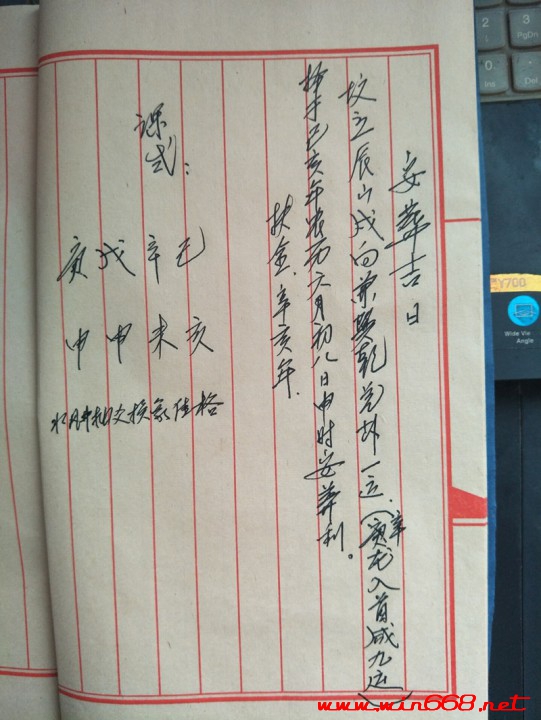 安葬吉日
坟立辰山戌向兼巽乾兑卦一运(寅龙入首成九运)
辛
择于己亥年农历六月初八日申时安葬利。
扶金、辛亥年.
课式:
庚戊辛己
申申未亥
佳格
PgDn
Ins
Del
Y700
Wide Vie
Angle
www.win668.net